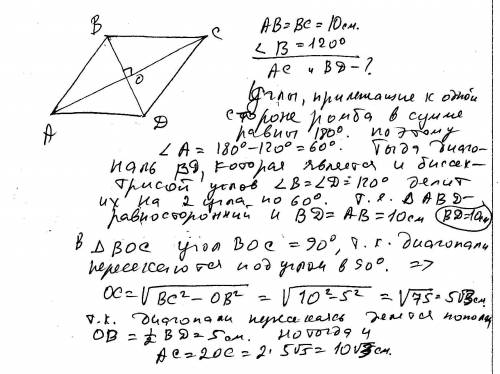 B
C
O
A
D
AB=BC=10см.
∠B=120°
AC и BD-?
Углы, прилежащие к одной
стороне ромба в сумме
равны 180°. поэтому
∠A=180°-120°=60°. Тогда диаго-
наль BD, которая является и биссек-
трисой углов ∠B=∠D=120° делит
их на 2 угла по 60°. т.е. △ABD-
равносторонний и BD=AB=10см
В △BOC угол BOC=90°, т.к. диагонали
пересекаются под углом в 90°. =>
OC=√BC²-OB² = √10²-5² = √75=5√3см.
т.к. диагонали пересекаясь делятся пополам
OB=½BD=5см. но тогда и
AC=2OC=2·5√3=10√3см.